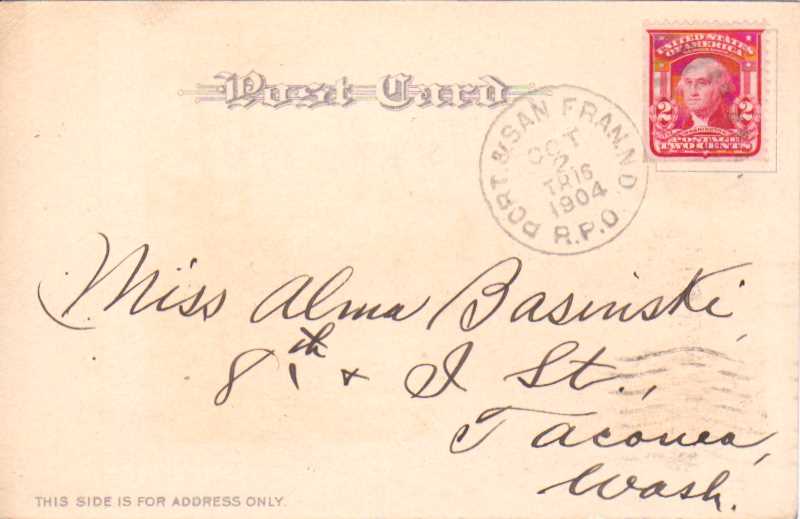 Post Card
UNITED STATES
OF AMERICA
2 2
WASHINGTON
POSTAGE
TWO CENTS
PORT. & SAN FRAN. N.D.
OCT
2
TR 16
1904
R.P.O.
Miss Alma Basinski,
8th + I St.,
Tacoma,
Wash.
THIS SIDE IS FOR ADDRESS ONLY.